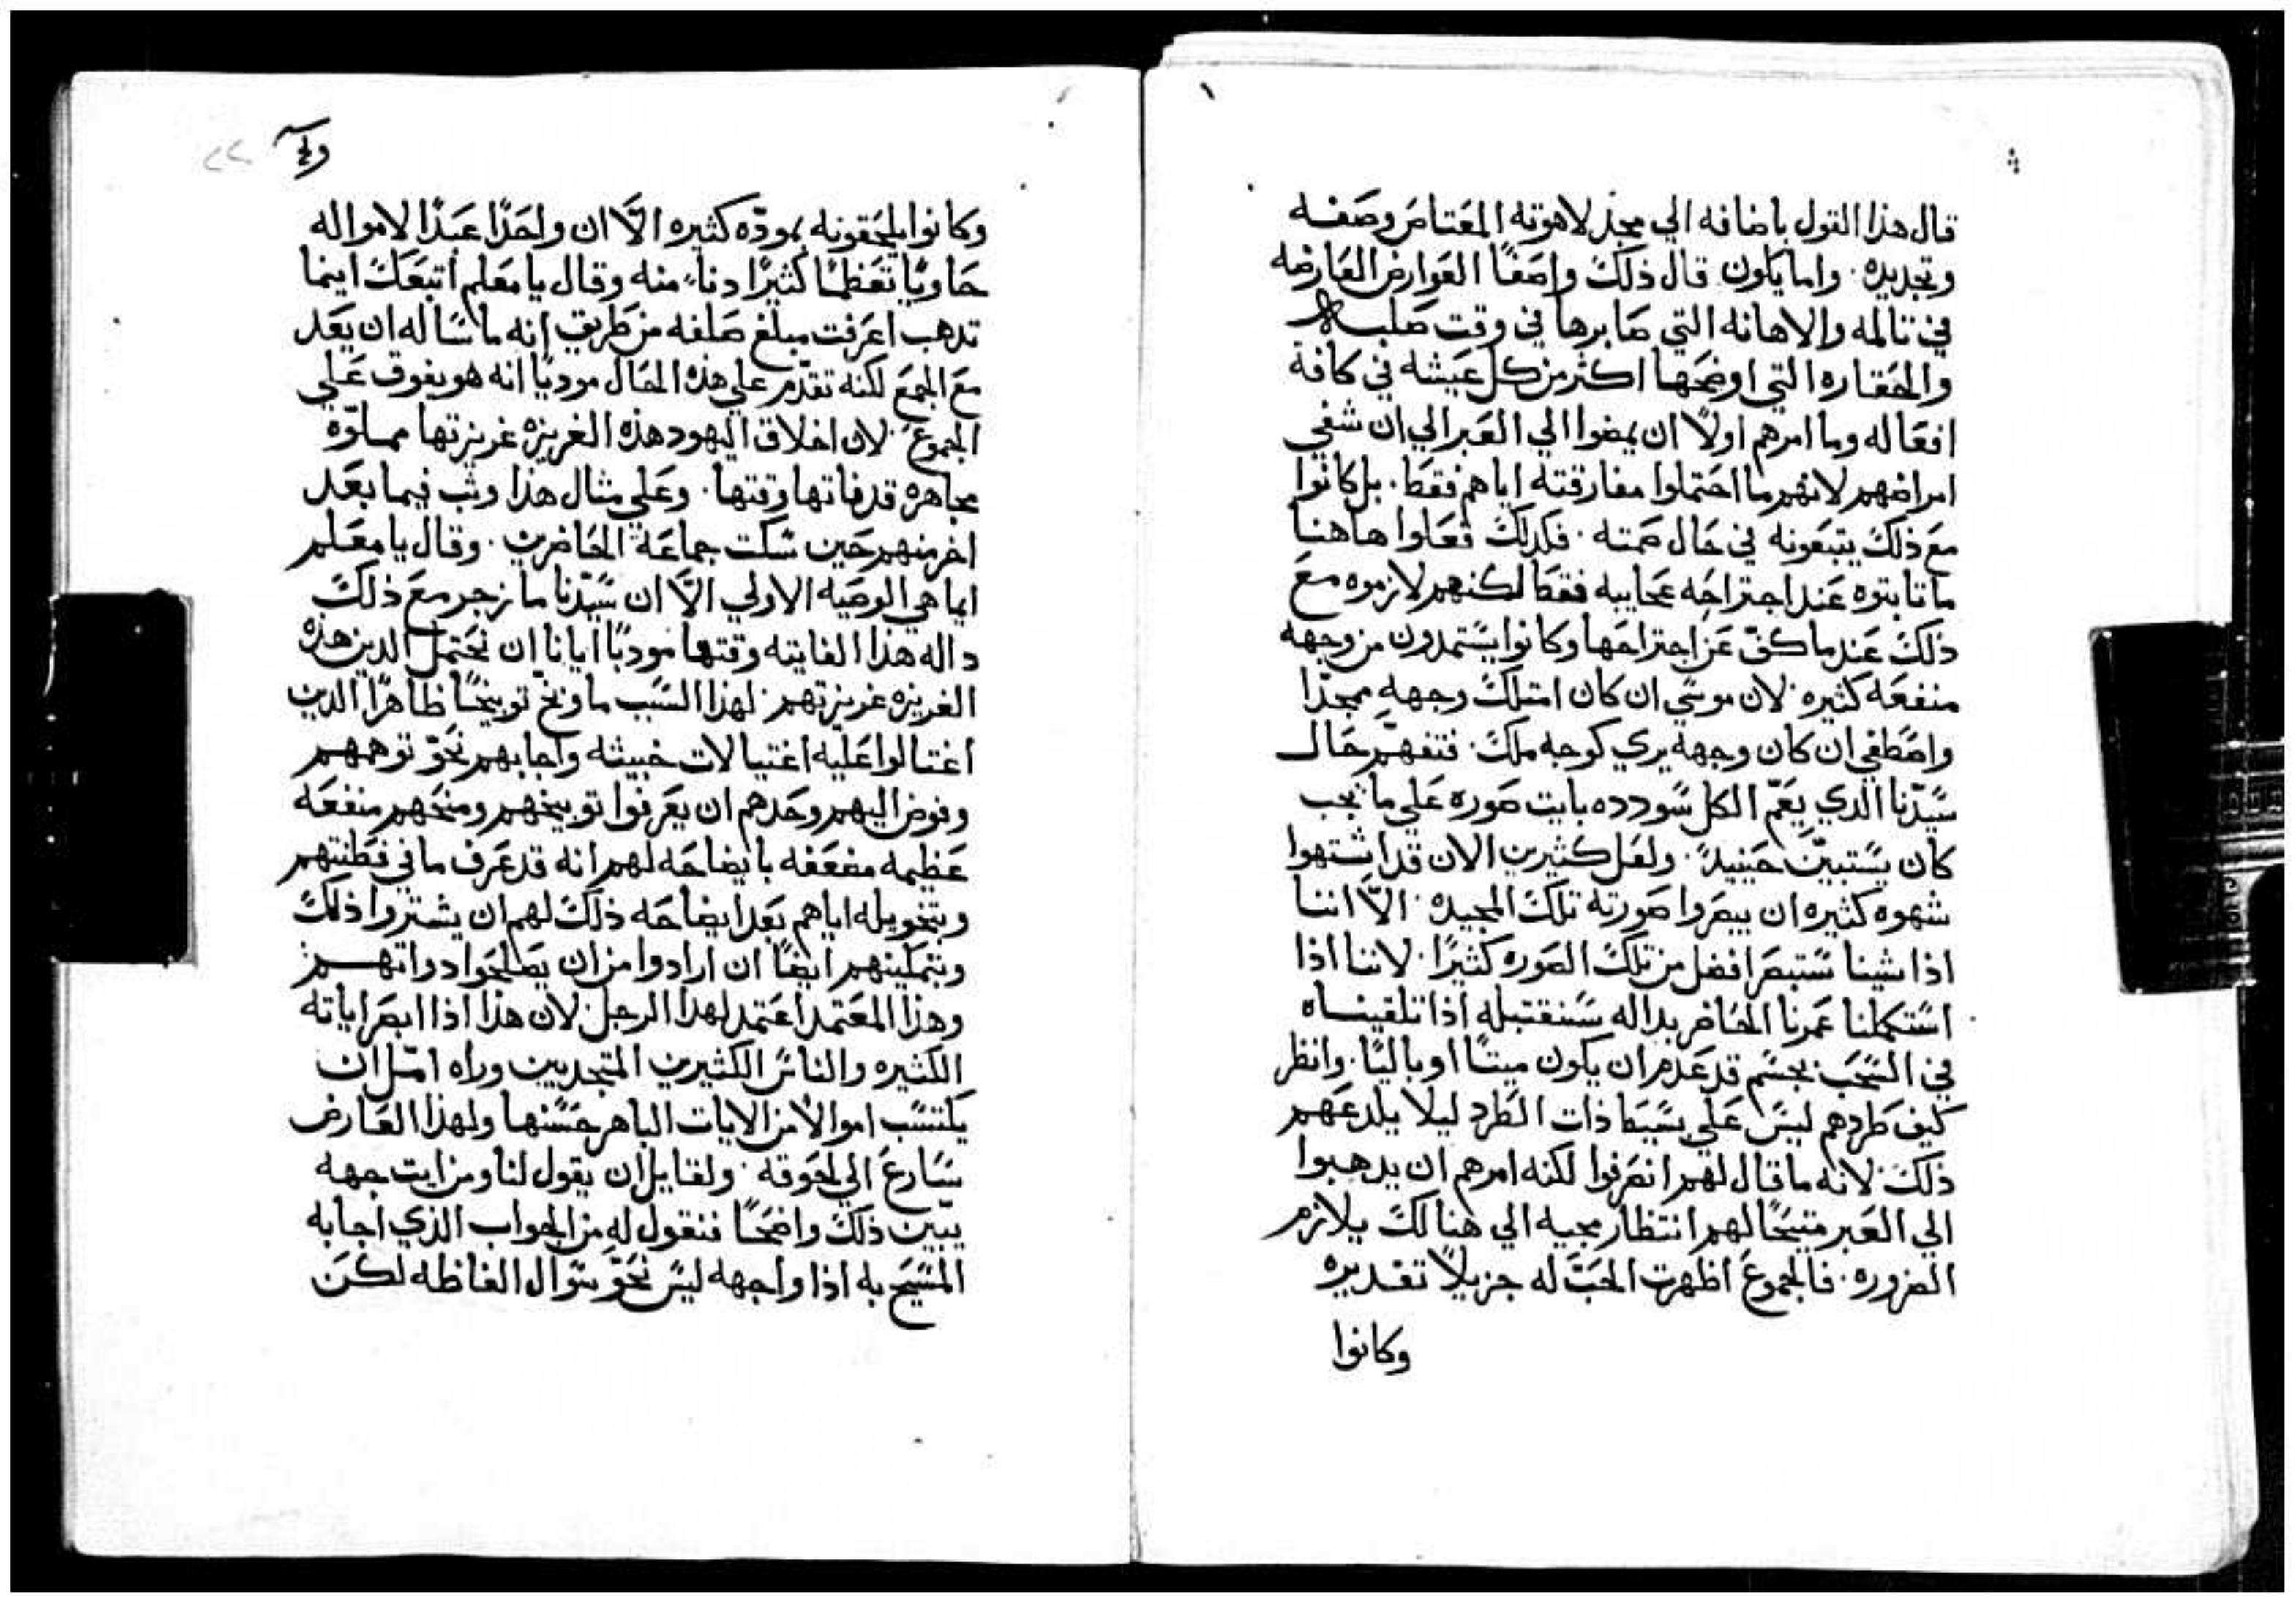 قال هذا القول باضافه الي مجد لاهوته المعتاص وصفه
وتجديده. واما يكون قال ذلك واصفًا العوارض العارضه
في تالمه والاهانه التي صابرها في وقت صلبه
والحقاره التي اوضحها اكثر من كل عيشه في كافة
افعاله وما امرهم اولاً ان يمضوا الي العبر الي ان شفي
امراضهم لانهم ما احتملوا مفارقته اياهم فقط. بل كانوا
مع ذلك يتبعونه في حال صمته. فكذلك فعلوا هاهنا
ما ثابتوه عند اجتراحه عجايبه فقط لكنهم لازموه مع
ذلك عند ما كفّ عن اجتراحها وكانوا يستمدون من وجهه
منفعه كثيره. لان موسي ان كان امتلك وجههِ ممجدًا
واصطفي ان كان وجهه يري كوجه ملك. فتفهّم حال
سيّدنا الذي يعمّ الكل سودده بايت صوره علي ما يجب
كان يستبيّن حينيدً. ولعل كثيرين الان قد اشتهوا
شهوه كثيره ان يبصروا صورته تلك المجيده. الاّ اننا
اذا شينا سنبصر افضل من تلك الصوره كثيرًا. لاننا اذا
استكملنا عمرنا الحاضر بداله سنقتبله اذا تلقيناه
في السحب بجسم قد عدم ان يكون ميتًا او باليًا. وانظر
كيف طردهم ليس علي بسيط ذات الطرد ليلا يلدعهم
ذلك. لانه ما قال لهم انصرفوا لكنه امرهم ان يدهبوا
الي العبر متيحًا لهم انتظار مجيه الي هنالك بلازم
الضروره. فالجموع اظهرت الحب له جزيلاً تقديره
وكانوا
وكانوا يلحقونه بمودّه كثيره الاّ ان واحدًا عبدًا لامواله
حاويًا تعظمًا كثيرًا دنا منه وقال يا معلم اتبعك اينما
تدهب اعرفت مبلغ صلفه من طريق انه ما سال ان يعد
مع الجمع لكنه تقدّم علي هذه الحال موديًا انه هو يفوق علي
الجموع. لان اخلاق اليهود هذه الغريزه غريزتها مملوّه
مجاهره قد فاتها وقتها. وعلي مثال هذا وثب فيما بعد
اخر منهم حين سكت جماعة الحاضرين. وقال يا معلم
ايما هي الوصيه الاولي الاّ ان سيّدنا ما زجر مع ذلك
داله هذا الفايته وقتها مودبًا ايانا ان نحتمل الدين هذه
الغريزه غريزتهم. لهذا السبب ما وبّخ توبيخًا ظاهرًا الدين
اغتالوا عليه اغتيالات خبيثه واجابهم نحو توهمهم
وفوض اليهم وحدهم ان يعرفوا توبيخهم ومنحهم منفعه
عظيمه مضعفه بايضاحه لهم انه قد عرف ما في فطنتهم
وبتخويله اياهم بعد ايضاحه ذلك لهم ان يشتروا ذلك
وبتمكينهم ايضًا ان ارادوا من ان يصلحوا دواتهم
وهذا المعتمد اعتمد لهدا الرجل لان هذا اذا ابصر اياته
الكثيره والناس الكثيرين المتجدبين وراه امّل ان
يكتسب اموالاً من الايات الباهر حسنها ولهذا العارض
سارع الي لحوقه. ولقايل ان يقول لنا ومن ايت جهه
يبّين ذلك واضحًا فنقول له من الجواب الذي اجابه
المسيح به اذا واجهه ليس نحو سوال الفاظه لكن